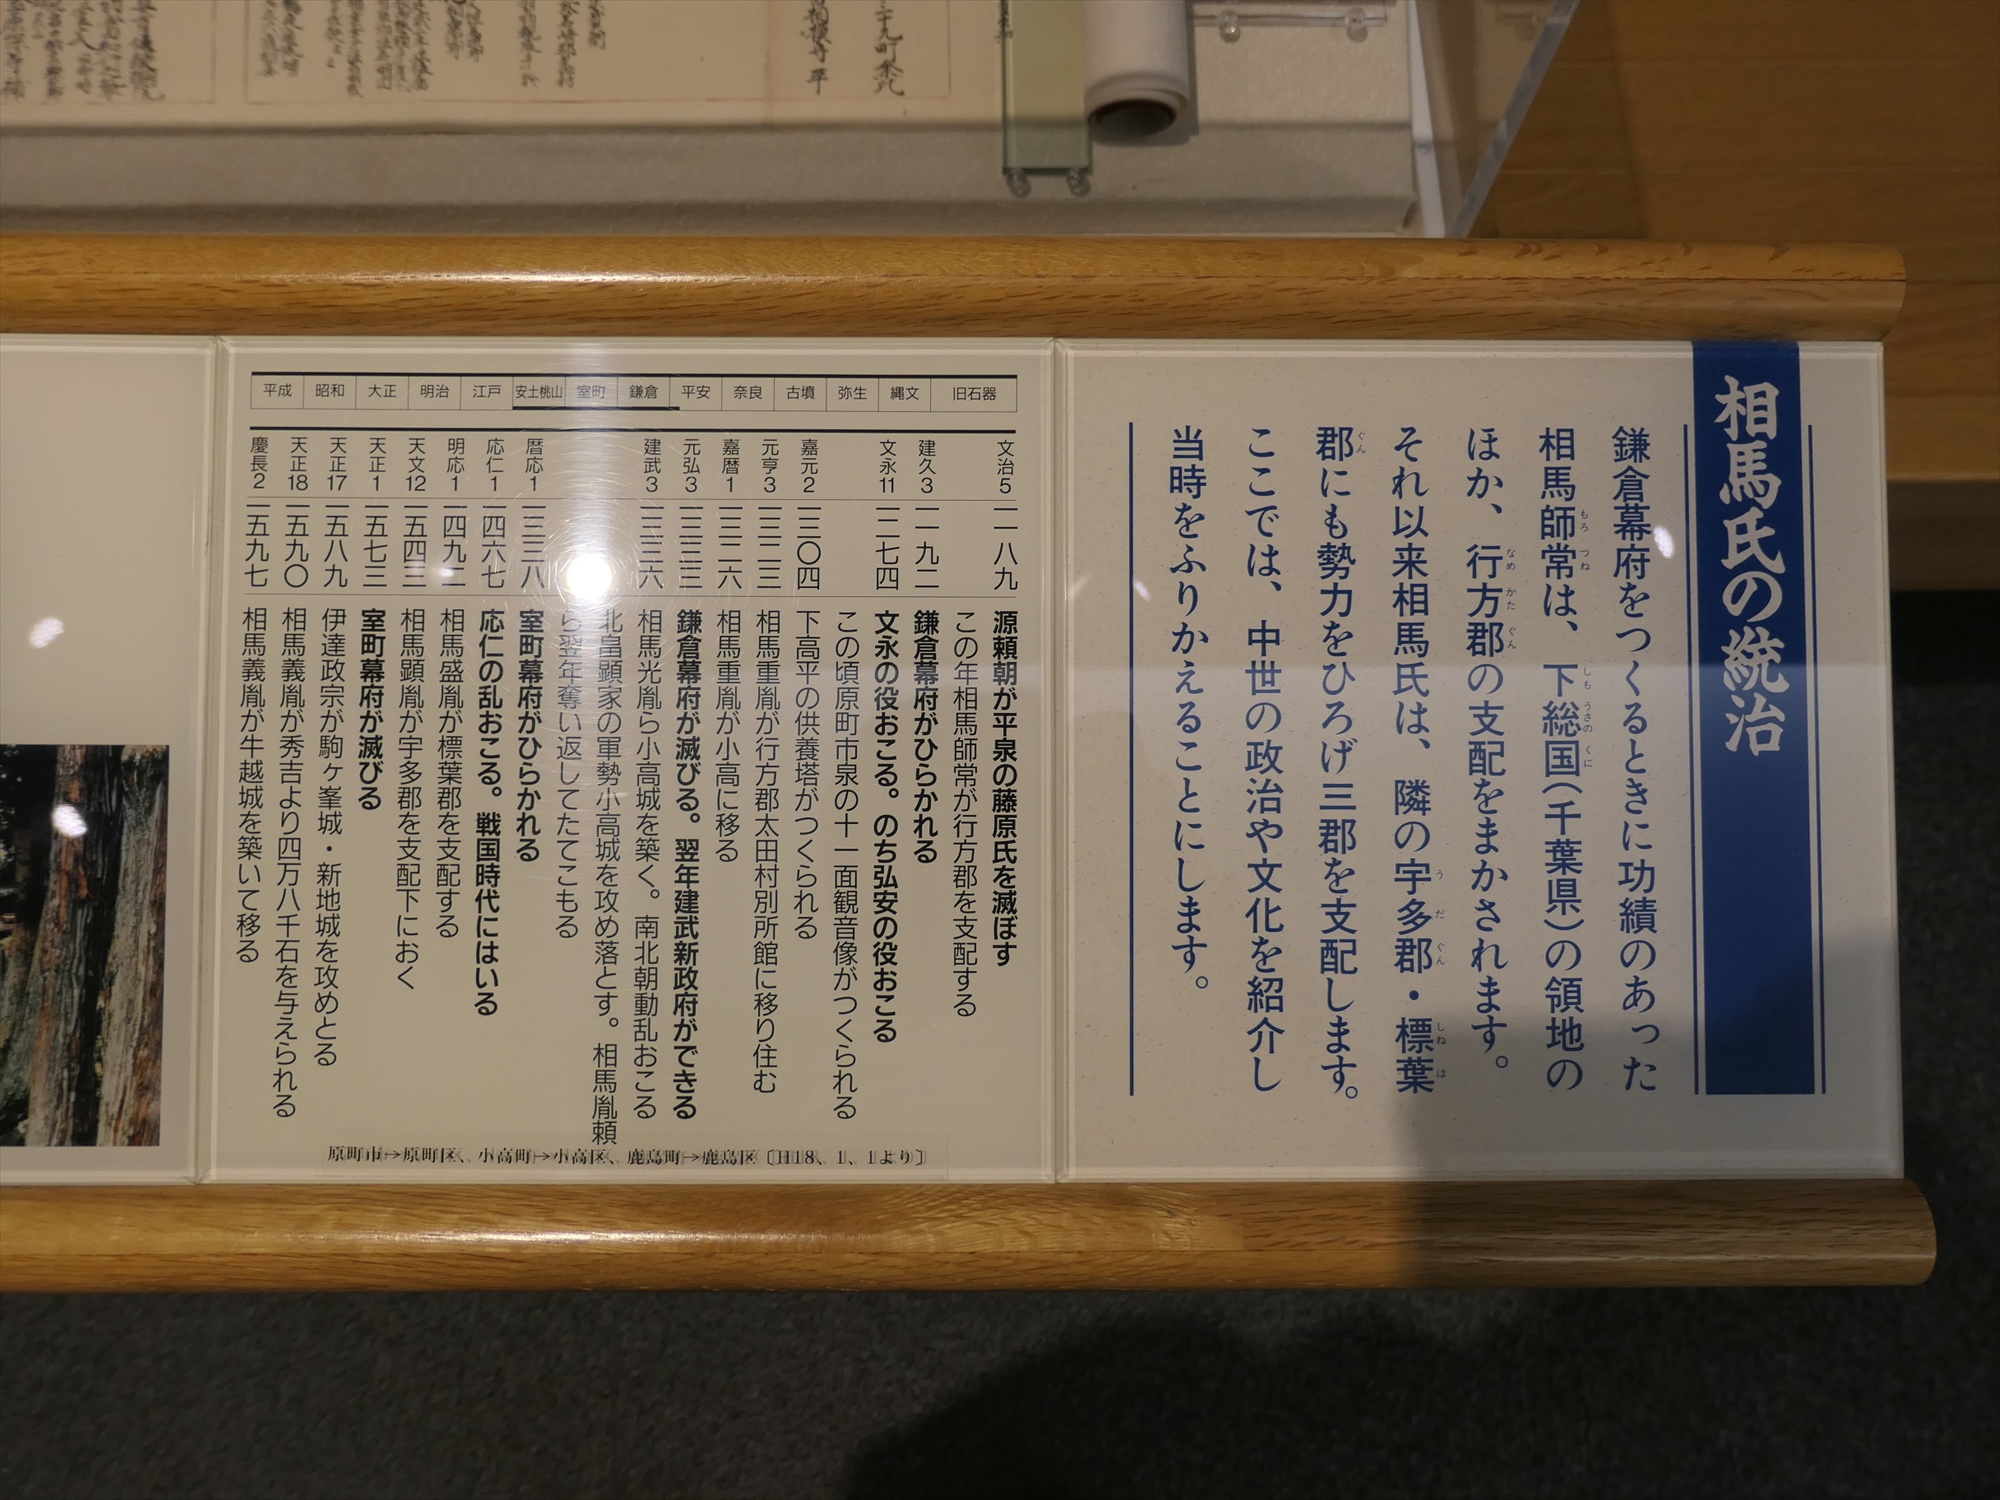 相馬氏の統治
鎌倉幕府をつくるときに功績のあった
相馬師常は、下総国(千葉県)の領地の
もろ つね しも うさの くに
ほか、行方郡の支配をまかされます。
なめ かた ぐん
それ以来相馬氏は、隣の宇多郡・標葉
う だ ぐん しね は
郡にも勢力をひろげ三郡を支配します。
ぐん
ここでは、中世の政治や文化を紹介し
当時をふりかえることにします。
旧石器 縄文 弥生 古墳 奈良 平安 鎌倉 室町 安土桃山 江戸 明治 大正 昭和 平成
文治5 一一八九 源頼朝が平泉の藤原氏を滅ぼす
この年相馬師常が行方郡を支配する
建久3 一一九二 鎌倉幕府がひらかれる
文永11 一二七四 文永の役おこる。のち弘安の役おこる
この頃原町市泉の十一面観音像がつくられる
嘉元2 一三〇四 下高平の供養塔がつくられる
元亨3 一三二三 相馬重胤が行方郡太田村別所館に移り住む
嘉暦1 一三二六 相馬重胤が小高に移る
元弘3 一三三三 鎌倉幕府が滅びる。翌年建武新政府ができる
建武3 一三三六 相馬光胤ら小高城を築く。南北朝動乱おこる
北畠顕家の軍勢小高城を攻め落とす。相馬胤頼
ら翌年奪い返してたてこもる
暦応1 一三三八 室町幕府がひらかれる
応仁1 一四六七 応仁の乱おこる。戦国時代にはいる
明応1 一四九二 相馬盛胤が標葉郡を支配する
天文12 一五四三 相馬顕胤が宇多郡を支配下におく
天正1 一五七三 室町幕府が滅びる
天正17 一五八九 伊達政宗が駒ヶ峯城・新地城を攻めとる
天正18 一五九〇 相馬義胤が秀吉より四万八千石を与えられる
慶長2 一五九七 相馬義胤が牛越城を築いて移る
原町市→原町区、小高町→小高区、鹿島町→鹿島区〔H18、1、1より〕